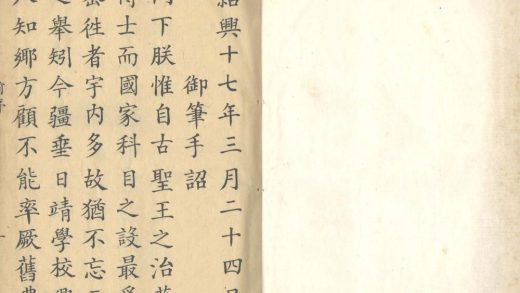 紹興十七年三月二十四日
御筆手詔
門下朕惟自古聖王之治
士而國家科目之設最
密徃者宇内多故猶不忘
舉矧今疆垂日靖學校
知鄉方顧不能率厥舊典